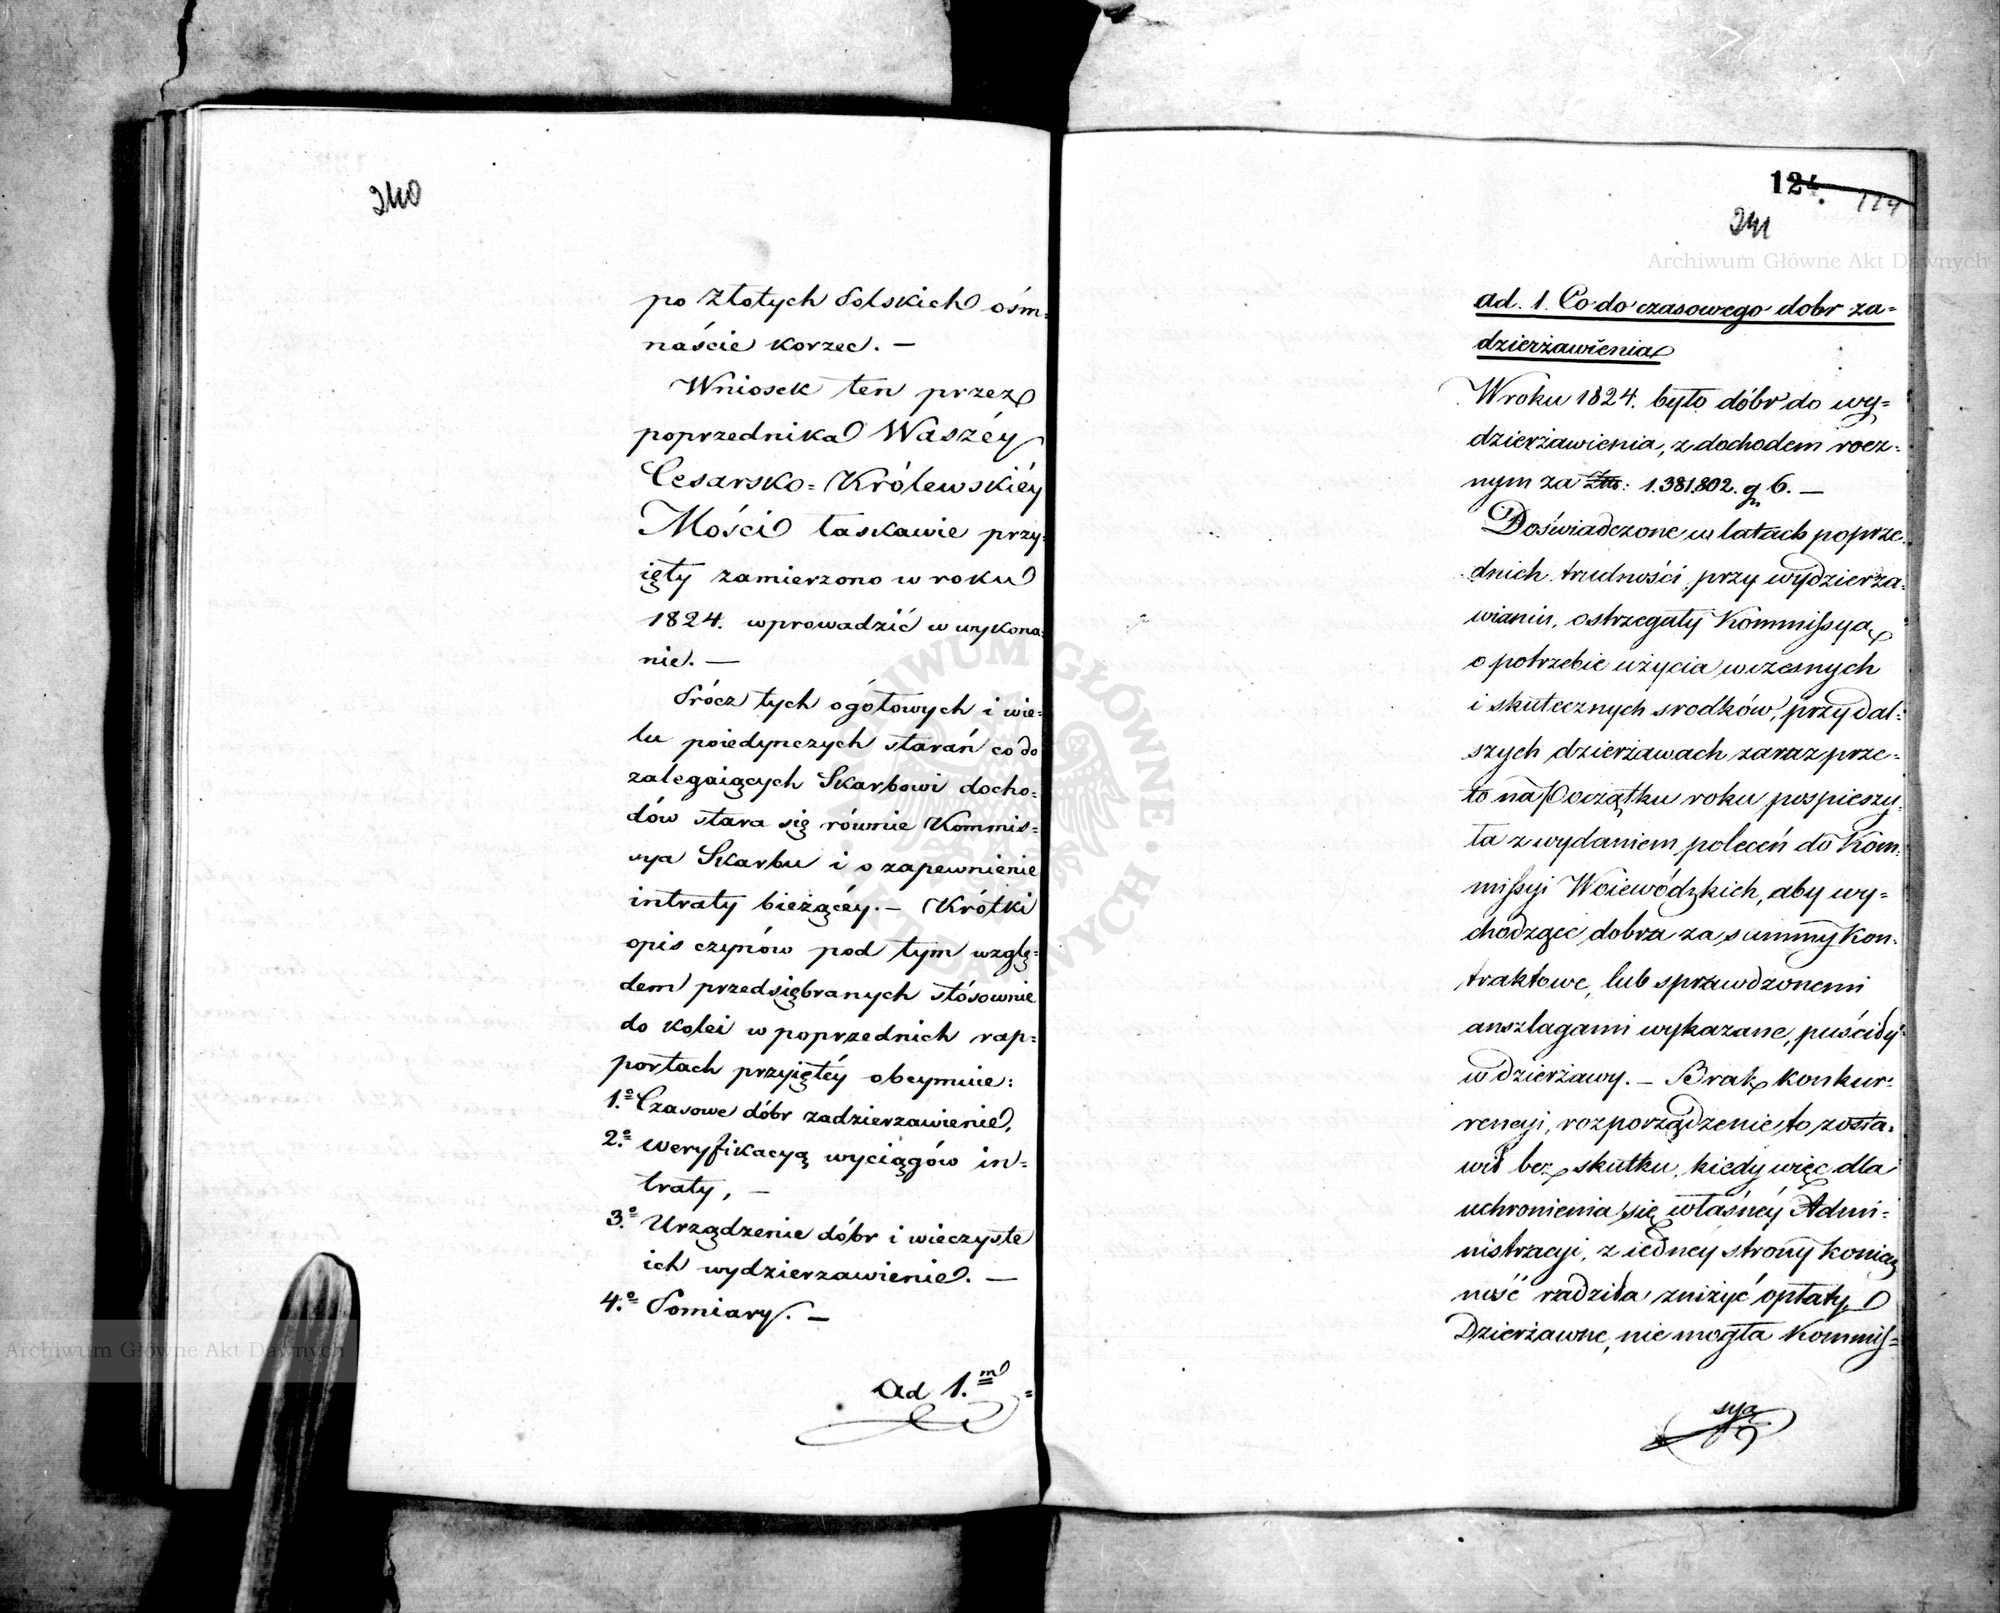 240
po Złotych Polskich ośm=
naście korzec. —
Wniosek ten przez
poprzednika Waszéy
Cesarsko=Królewskiéy
Mości łaskawie przy=
ięty zamierzono w roku
1824. wprowadzić w wykona=
nie. —
Prócz tych ogółowych i wie=
lu poiedynczych starań co do
zalegaiących Skarbowi docho=
dów stara się równie Kommis=
sya Skarbu i o zapewnienie
intraty bieżącéy. — Krótki
opis czynów pod tym wzglę=
dem przedsiębranych stósownie
do kolei w poprzednich rap=
portach przyiętéy obeymuie:
1.º Czasowe dóbr zadzierzawienie,
2.º weryfikacyą wyciągów in=
traty, —
3.º Urządzenie dóbr i wieczyste
ich wydzierzawienie. —
4.º Pomiary. —
Ad 1.m =
124
119
241
ad. 1. Co do czasowego dobr za=
dzierżawienia
W roku 1824. było dóbr do wy=
dzierżawienia, z dochodem rocz=
nym za Złtt: 1.381.802. g 6. —
Doświadczone w latach poprze=
dnich trudności przy wydzierża=
wianiu, ostrzegały Kommissya
o potrzebie użycia wczesnych
i skutecznych srodków, przy dal=
szych dzierżawach zaraz prze=
to na Początku roku pospieszy=
ła z wydaniem poleceń do Kom=
missyi Woiewódzkich, aby wy=
chodzące dobra za summy Kon=
traktowe, lub sprawdzonemi
anszlagami wykazane, puściły
w dzierżawy. — Brak konkur=
rencyi, rozporządzenie to zosta=
wił bez skutku, kiedy więc dla
uchronienia się własnéy Admi=
nistracyi, z iedney strony koniecz
ność radziła zniżyć opłaty
Dzierżawne, nie mogła Kommis=
sya
Archiwum Główne Akt Dawnych
Archiwum Główne Akt Dawnych
ARCHIWUM GŁÓWNE AKT DAWNYCH